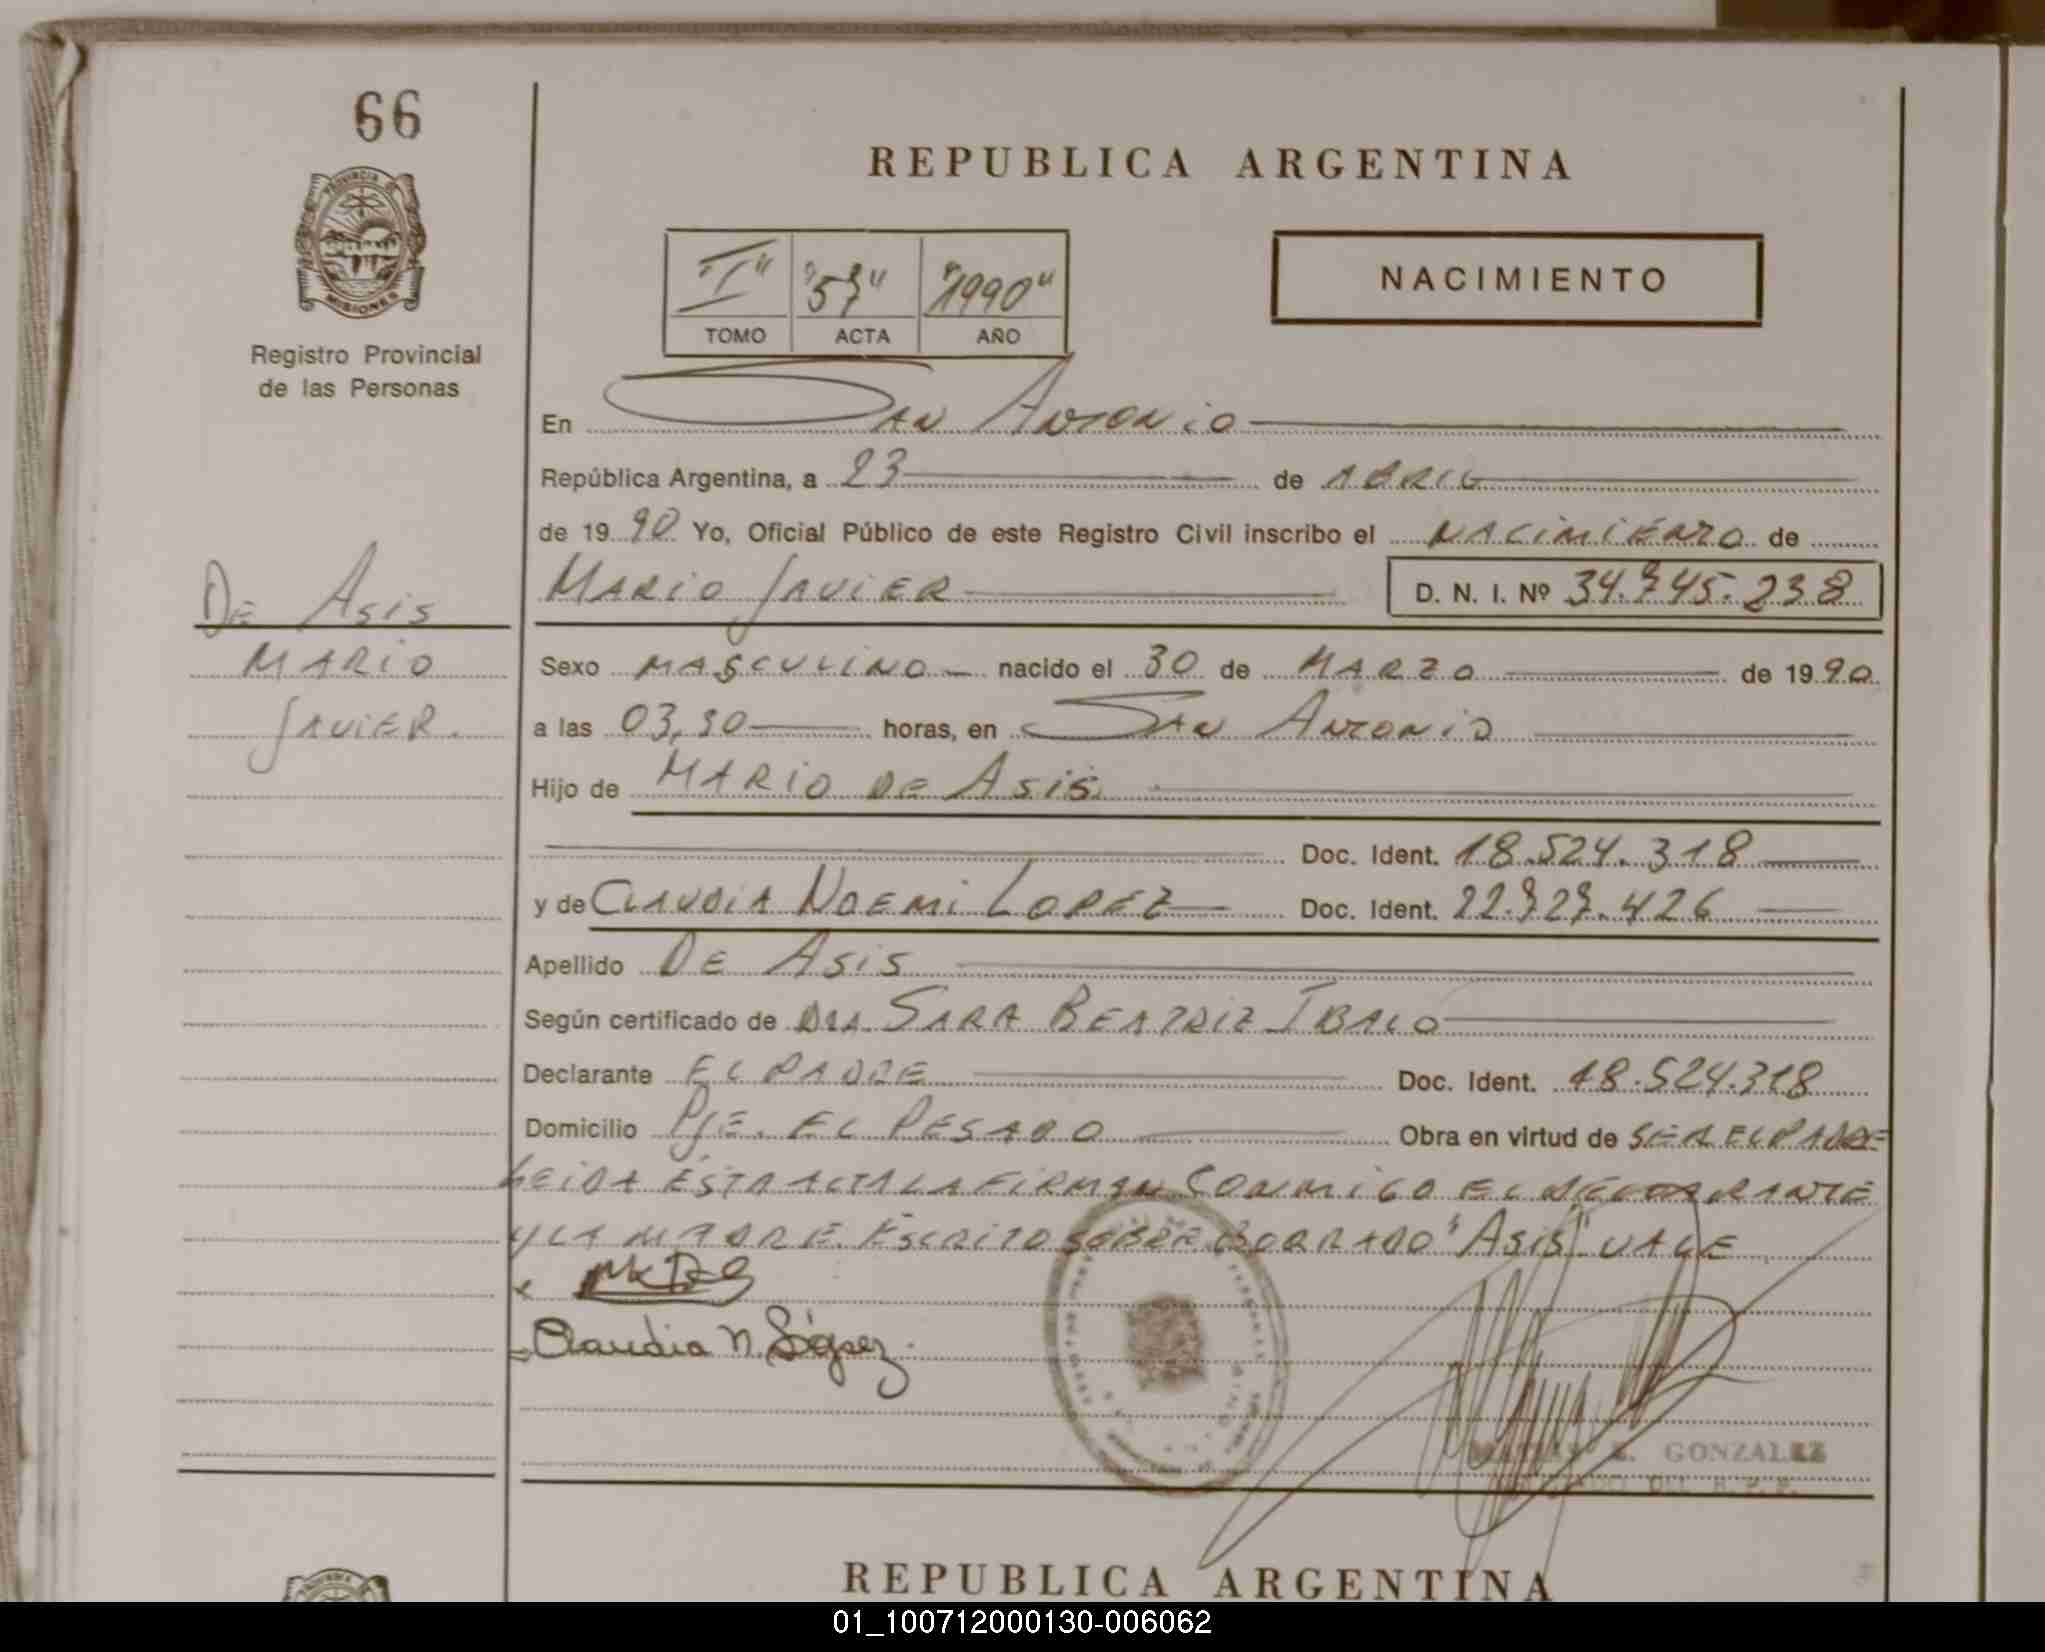 66
REPUBLICA ARGENTINA
PROVINCIA DE
MISIONES
Registro Provincial
de las Personas
"I" "57" "1990"
TOMO ACTA AÑO
NACIMIENTO
En San Antonio
República Argentina, a 23 de ABRIL
de 1990 Yo, Oficial Público de este Registro Civil inscribo el NACIMIENTO de
MARIO JAVIER D. N. I. Nº 34.745.238
De Asis
MARIO
JAVIER.
Sexo MASCULINO nacido el 30 de MARZO de 1990
a las 03,30 horas, en San Antonio
Hijo de MARIO DE Asis
Doc. Ident. 18.524.318
y de CLAUDIA NOEMI LOPEZ Doc. Ident. 22.727.426
Apellido DE Asis
Según certificado de DRA. SARA BEATRIZ IBALO
Declarante EL PADRE Doc. Ident. 18.524.318
Domicilio PJE. EL PESADO Obra en virtud de SER EL PADRE
LEIDA ESTA ACTA LA FIRMAN CONMIGO EL DECLARANTE
Y LA MADRE. ESCRITO SOBRE BORRADO "Asis" VALE
Claudia N. López.
GONZALEZ
DEL R.P.P.
REPUBLICA ARGENTINA
01_100712000130-006062